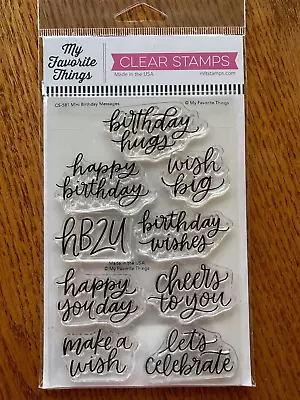 My
Favorite
Things
CLEAR STAMPS
Made in the USA
mftstamps.com
CS-581 Mini Birthday Messages
© My Favorite Things
birthday
hugs
happy
birthday
wish
big
HB2U
birthday
wishes
Made in the USA
© My Favorite Things
happy
you day
cheers
to you
make a
wish
let's
celebrate